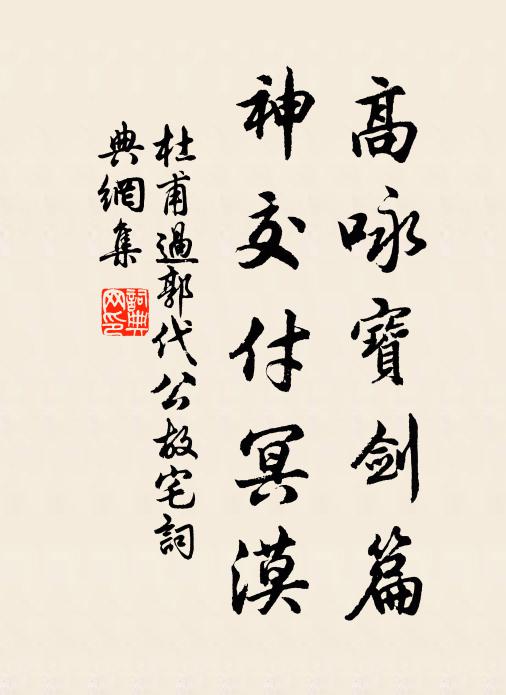 高咏寶劍篇
神交付冥漠
杜甫過郭代公故宅詞
典網集
詞典
网印